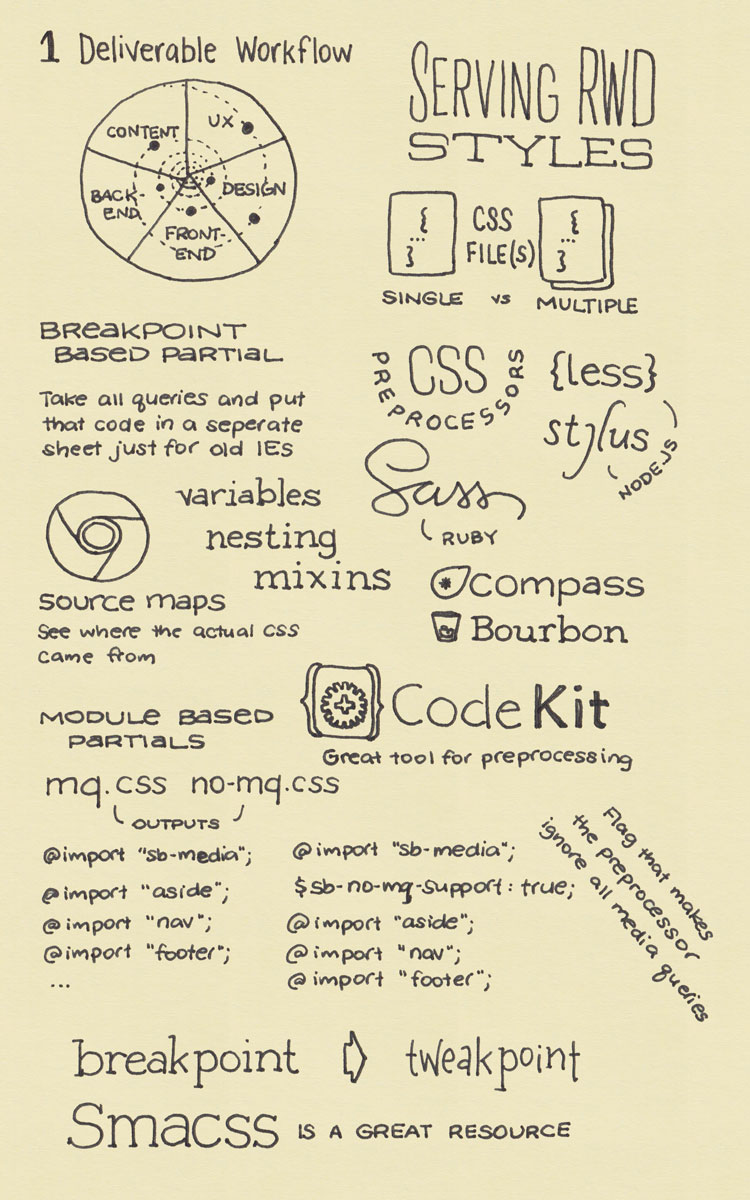 1 Deliverable Workflow
CONTENT
UX
BACK-
END
DESIGN
FRONT-
END
SERVING RWD
STYLES
{
...
}
CSS
FILE(S)
{
...
}
SINGLE vs MULTIPLE
BREAKPOINT
BASED PARTIAL
Take all queries and put
that code in a seperate
sheet just for old IEs
CSS
PREPROCESSORS
{less}
stylus
NODEJS
Sass
RUBY
variables
nesting
mixins
compass
Bourbon
source maps
See where the actual CSS
came from
CodeKit
Great tool for preprocessing
MODULE BASED
PARTIALS
mq.css no-mq.css
OUTPUTS
@import "sb-media";
@import "aside";
@import "nav";
@import "footer";
...
@import "sb-media";
$sb-no-mq-support: true;
@import "aside";
@import "nav";
@import "footer";
Flag that makes
the preprocessor
ignore all media queries
breakpoint ⇨ tweakpoint
Smacss IS A GREAT RESOURCE